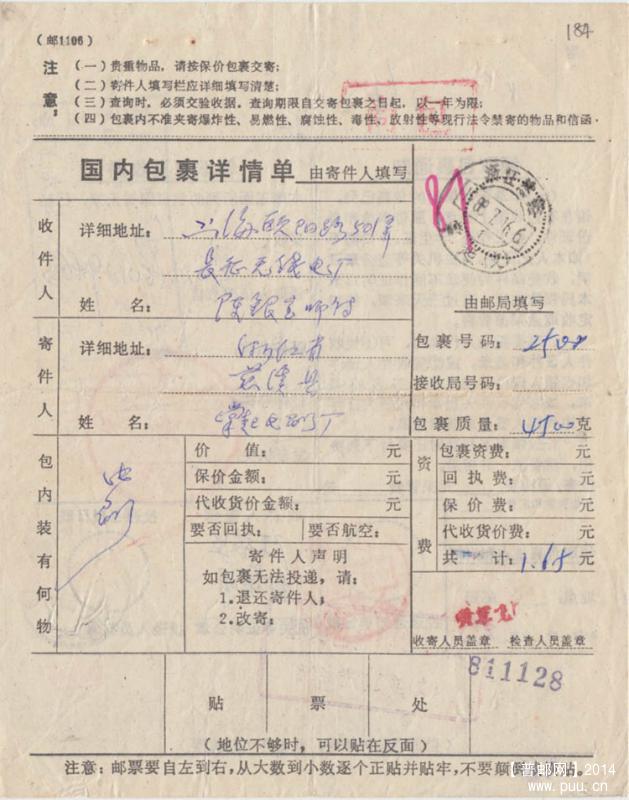 184
(邮1106)
注意：
(一) 贵重物品，请按保价包裹交寄；
(二) 寄件人填写栏应详细填写清楚；
(三) 查询时，必须交验收据，查询期限自交寄包裹之日起，以一年为限；
(四) 包裹内不准夹寄爆炸性、易燃性、腐蚀性、毒性、放射性等现行法令禁寄的物品和信函
国内包裹详情单 由寄件人填写
收件人
详细地址：上海欧阳路501弄
长征无线电厂
姓名：
寄件人
详细地址：浙江省
慈溪县
姓名：
由邮局填写
包裹号码：2500
接收局号码：
包裹质量：4500克
包内装有何物
价值： 元
保价金额： 元
代收货价金额： 元
要否回执： 要否航空：
寄件人声明
如包裹无法投递，请：
1.退还寄件人；
2.改寄：
资费
包裹资费： 元
回执费： 元
保价费： 元
代收货价费： 元
共计：1.65元
收寄人员盖章 检查人员盖章
811128
贴票处
(地位不够时，可以贴在反面)
注意：邮票要自左到右，从大数到小数逐个正贴并贴牢，不要颠
普邮网 2014
www.puu.cn